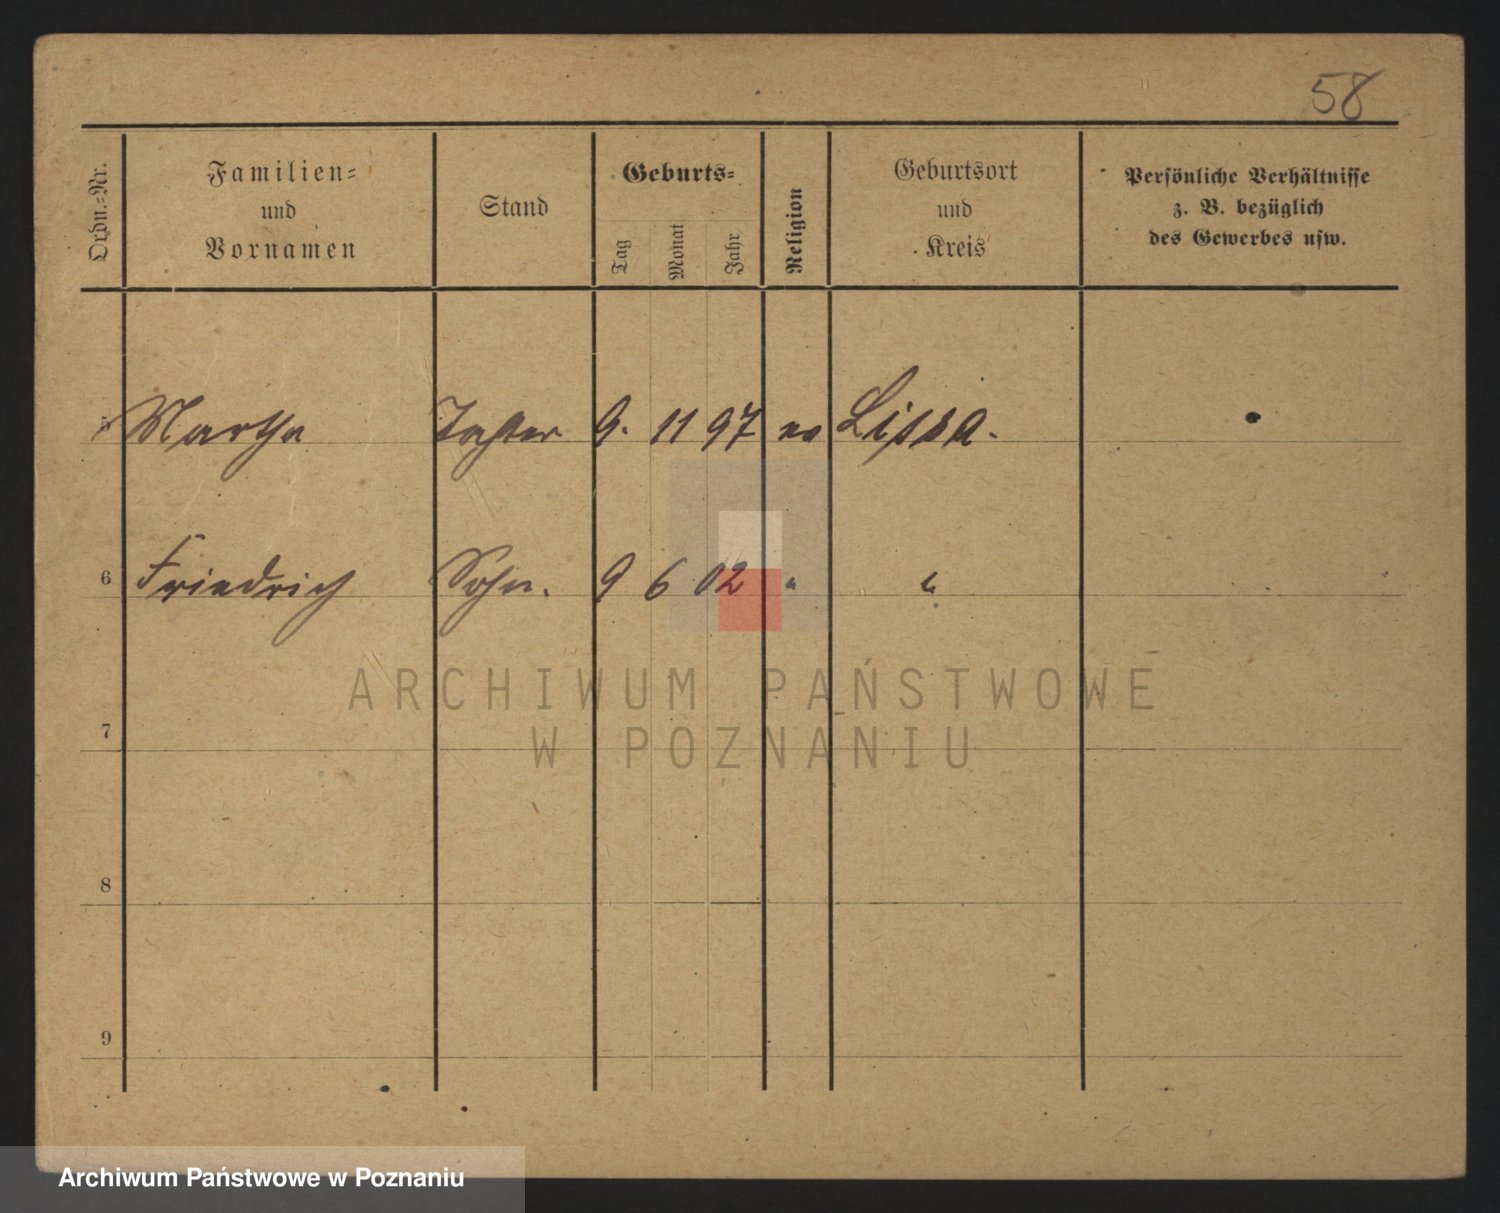 58
Ordn.-Nr.
Familien-
und
Vornamen
Stand
Geburts-
Tag
Monat
Jahr
Religion
Geburtsort
und
Kreis
Persönliche Verhältnisse
z. B. bezüglich
des Gewerbes usw.
5 Martha Tochter 9. 11 97 ev Lissa.
6 Friedrich Sohn. 9 6 02 " "
ARCHIWUM PAŃSTWOWE
W POZNANIU
7
8
9
Archiwum Państwowe w Poznaniu